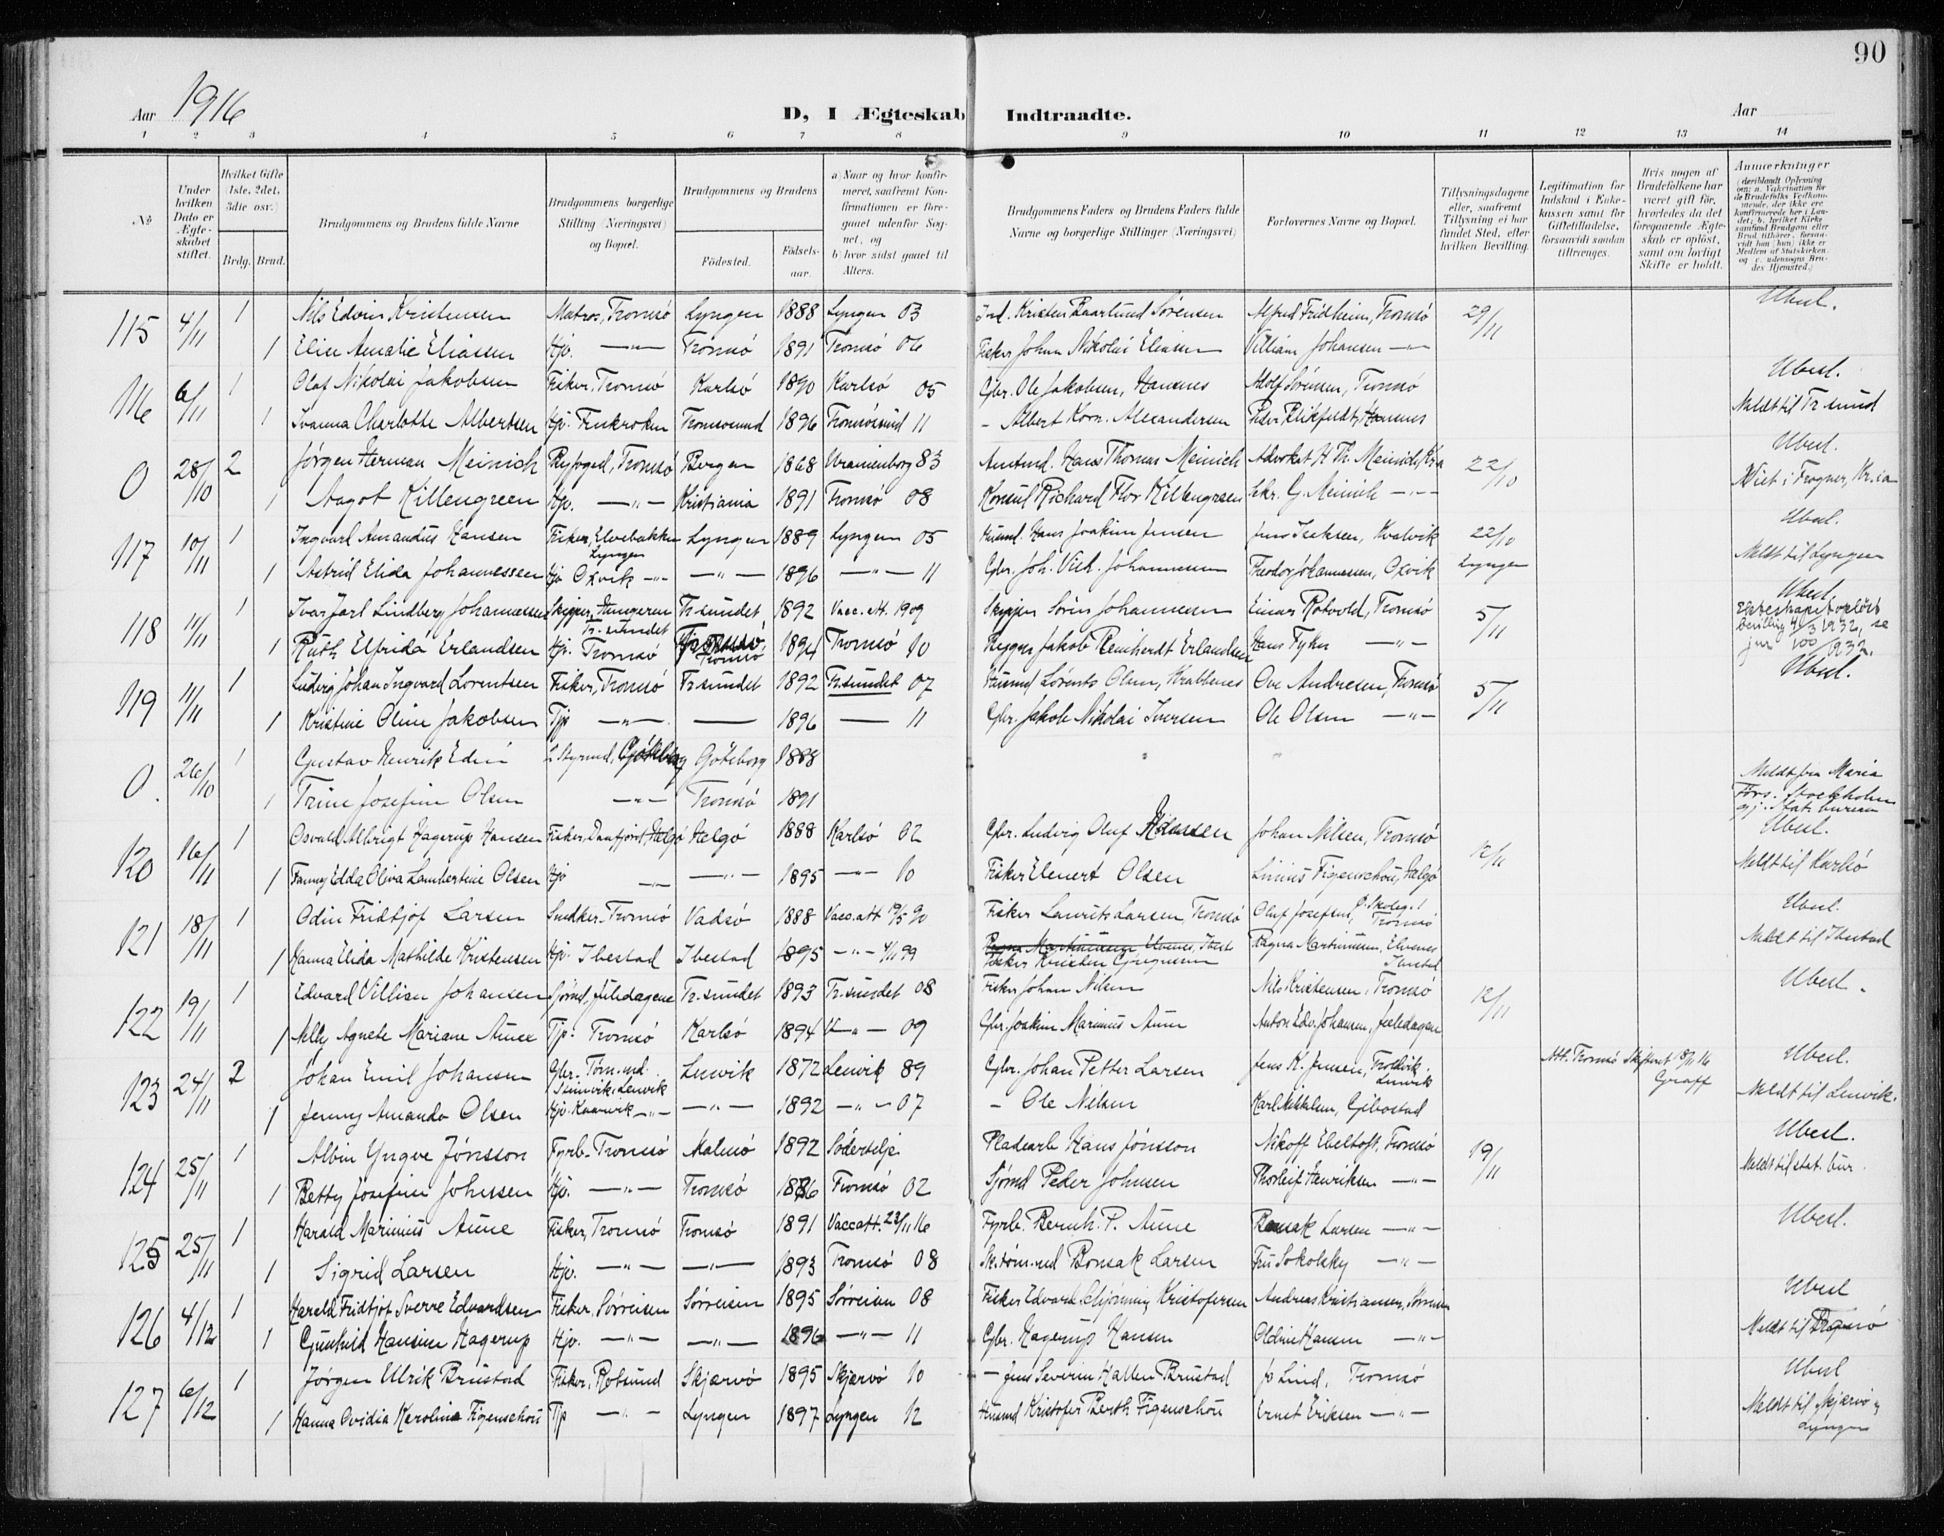 90
Aar 1916
D, I Ægteskab Indtraadte.
Aar
1 2 3 4 5 6 7 8 9 10 11 12 13 14
№
Under hvilken Dato er Ægteskabet stiftet.
Hvilket Gifte (1ste, 2det, 3die osv.)
Brdg. Brud.
Brudgommens og Brudens fulde Navne
Brudgommens borgerlige Stilling (Næringsvei) og Bopæl.
Brudgommens og Brudens
Födested.
Födselsaar.
a) Naar og hvor konfirmeret, saafremt Konfirmationen er foregaaet udenfor Sognet, og
b) hvor sidst gaaet til Alters.
Brudgommens Faders og Brudens Faders fulde Navne og borgerlige Stillinger (Næringsvei)
Forlovernes Navne og Bopæl.
Tillysningsdagene eller, saafremt Tillysning ei har fundet Sted, efter hvilken Bevilling.
Legitimation for Indskud i Enkekassen samt for Giftetilladelse, forsaavidt saadan tiltrænges.
Hvis nogen af Brudefolkene har været gift för, hvorledes da det foregaaende Ægteskab er oplöst, samt om lovligt Skifte er holdt.
Anmærkninger
115 4/11 1 Nils Edvin Kristensen Matros, Tromsø Lyngen 1888 Lyngen 03 Ind. Kristen Baarlund Sørensen Alfred Fridheim, Tromsø 29/11 Ubesl.
1 Elise Amalie Eliasen Hp. —"— Tromsø 1891 Tromsø 06 Fisker Johan Nikolai Eliasen William Johansen —"—
116 6/11 1 Olaf Nikolai Jakobsen Fisker, Tromsø Karlsø 1890 Karlsø 05 Gbr. Ole Jakobsen, Hansnes Adolf Sørensen, Tromsø Ubesl.
1 Ivanna Charlotte Albertsen Hp. Finkroken Tromsøsund 1896 Tromsøsund 11 - Albert Korn. Alexandersen Peder Blikfeldt, Hansnes Meldt til Tr.sund
0 28/10 2 Jørgen Herman Meinich Byfoged, Tromsø Bergen 1868 Uranienborg 83 Amtmd. Hans Thomas Meinich Advokat H. Th. Meinich, Kr.a 22/10 Ubesl.
1 Aagot Killengreen Hp. —"— Kristiania 1891 Tromsø 08 Konsul Richard Flor Killengreen Sekr. G. Meinich —"— Viet i Frogner, Kr.ia
117 10/11 1 Ingvard Amandus Hansen Fisker, Elvebakken Lyngen Lyngen 1889 Lyngen 05 Husmd. Hans Joakim Jensen Jens Isaksen, Kvalvik 22/10 Ubesl.
1 Astrid Elida Johannessen Hp Oxvik —"— —"— 1896 —"— 11 Gbr. Joh. Vilh. Johannesen Theodor Johannessen, Oxvik Lyngen Meldt til Lyngen
118 11/11 1 Ivar Jarl Lindberg Johannessen Skipper, Hungeren Tr.sundet Tr.sundet 1892 Vacc. att. 1909 Skipper Søren Johannesen Einar Rotvold, Tromsø 5/11 Ubesl.
1 Ruth Elfrida Erlandsen Hp. Tromsø Tromsø 1894 Tromsø 10 Bygger Jakob Reinherdt Erlandsen Hans Fyhn —"— Ekteskapet opløst bevilling 4/3 1932, se jnr 100/1932.
119 11/11 1 Ludvig Johan Ingvard Lorentsen Fisker, Tromsø Tr.sundet 1892 Tr.sundet 07 Husmd Lorents Olsen, Krabbenes Ove Andresen, Tromsø 5/11 Ubesl.
1 Kristine Oline Jakobsen Tjp —"— —— 1896 —— 11 Gbr. Jakob Nikolai Iversen Ole Olsen —"—
0. 26/10 1 Gustav Henrik Edin 2 Styrmd, Göteborg Göteborg 1888
1 Trine Josefine Olsen —"— Tromsø 1891 Meldt fra Maria Förs. Stockholm gj. Stat. bureau
120 16/11 1 Osvald Albrigt Hagerup Hansen Fisker, Danfjord, Helgø Helgø 1888 Karlsø 02 Gbr. Ludvig Oluf Hansen Johan Nilsen, Tromsø 12/11 Ubesl.
1 Fanny Edda Oliva Lambertine Olsen Hp —"— —"— 1895 —"— 10 Fisker Elenert Olsen Linius Figenschou, Helgø Meldt til Karlsø
121 18/11 1 Odin Fridtjof Larsen Snedker, Tromsø Vadsø 1888 Vacc. att 19/5 90 Fisker Laurits Larsen, Tromsø Oluf Josefsen, Tromsø Ubesl.
1 Hanna Elida Mathilde Kristensen Hp. Ibestad Ibestad 1895 —"— 4/11 99 Fisker Kristen Gjregersen Ragna Martinusen, Elvenes, Ibestad Meldt til Ibestad
122 19/11 1 Edvard Villian Johansen Sjømd, Juledagene Tr.sundet 1893 Tr.sundet 08 Fisker Johan Nilsen Nils Kristensen, Tromsø 12/11 Ubesl.
1 Nelly Agnete Mariane Aune Tjp. Tromsø Karlsø 1894 —"— 09 Gbr. Joakim Marinius Aune Anton Edv. Johansen, Juledagene
123 24/11 2 Johan Emil Johansen Gbr. Tøm.md. Lenvik Lenvik 1872 Lenvik 89 Gbr. Johan Petter Larsen Jens K. Jensen, Lenvik Att. Tromsø Skifteret 18/11 16 Graff Ubesl.
1 Jenny Amanda Olsen Hp. Kaarvik —"— —"— 1892 —"— 07 - Ole Nilsen Karl Mikkelsen, Gibostad Meldt til Lenvik.
124 25/11 1 Albin Yngve Jönsson Fyrb. Tromsø Malmö 1892 Södertelje Pladearb Hans Jönsson Nikoff Ebeltoft, Tromsø 19/11 Ubesl.
1 Betty Josefine Johnsen Hp. —"— Tromsø 1886 Tromsø 02 Sjømd Peder Johnsen Thorleif Henriksen —"— Meldt til stat. bur.
125 25/11 1 Harald Marinius Aune Fisker, Tromsø Tromsø 1891 Vacc att. 23/11 16 Fyrb. Bernh. P. Aune Bonsak Larsen —"— Ubesl.
1 Sigrid Larsen Hp. —"— —"— 1893 Tromsø 08 Sk.tøm.md Bonsak Larsen Fru Sokolsky —"—
126 4/12 1 Harald Fridtjof Sverre Edvardsen Fisker, Sørreisen Sørreisen 1895 Sørreisen 08 Fisker Edvard Schjønning Kristofersen Andreas Kristiansen, Sørreisen Ubesl
1 Gunhild Hansine Hagerup Hp. —"— —"— 1896 —"— 11 Gbr. Hagerup Hansen Oldine Hansen —"— Meldt til Tranø
127 6/12 1 Jørgen Ulrik Brustad Fisker, Rotsund Skjærvø 1895 Skjærvø 10 - Jens Severin Hallen Brustad P Lind, Tromsø Ubesl
1 Hanna Ovidia Karolina Figenschou Tjp —"— Lyngen 1897 Lyngen 12 Husmd Kristofer Berth Figenschou Ernst Eriksen —"— Meldt til Skjærvø og Lyngen